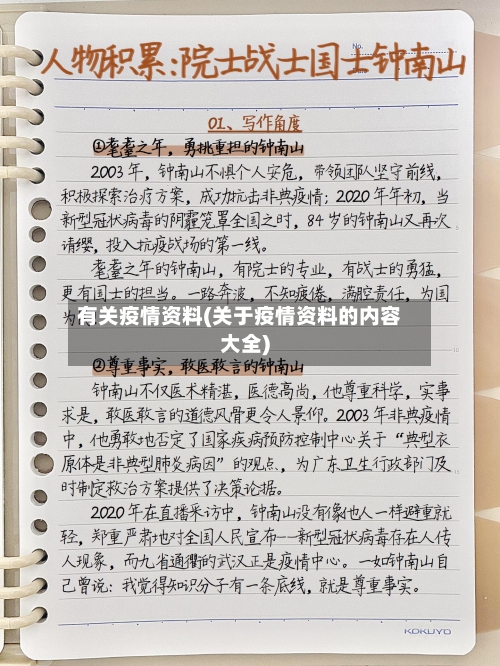 人物积累:院士战士国士钟南山
No.
01、写作角度
①耄耋之年，勇挑重担的钟南山
2003年，钟南山不惧个人安危，带领团队坚守前线，
积极探索治疗方案，成功抗击非典疫情；2020年年初，当
新型冠状病毒的阴霾笼罩全国之时，84岁的钟南山又再次
请缨，投入抗疫战场的第一线。
耄耋之年的钟南山，有院士的专业，有战士的勇猛，
更有国士的担当。一路奔波，不知疲倦，满腔责任，为国
为
有关疫情资料(关于疫情资料的内容
大全)
②尊重事实，敢医敢言的钟南山
钟南山不仅医术精湛，医德高尚，他尊重科学，实事
求是，敢医敢言的道德风骨更令人景仰。2003年非典疫情
中，他勇敢地否定了国家疾病预防控制中心关于“典型衣
原体是非典型肺炎病因”的观点，为广东卫生行政部门及
时制定救治方案提供了决策论据。
2020年在直播采访中，钟南山没有像他人一样避重就
轻，郑重严肃地对全国人民宣布——新型冠状病毒存在人传
人现象，而九省通衢的武汉正是疫情中心。一如钟南山自
己曾说：我觉得知识分子有一条底线，就是尊重事实。
KOKUYO